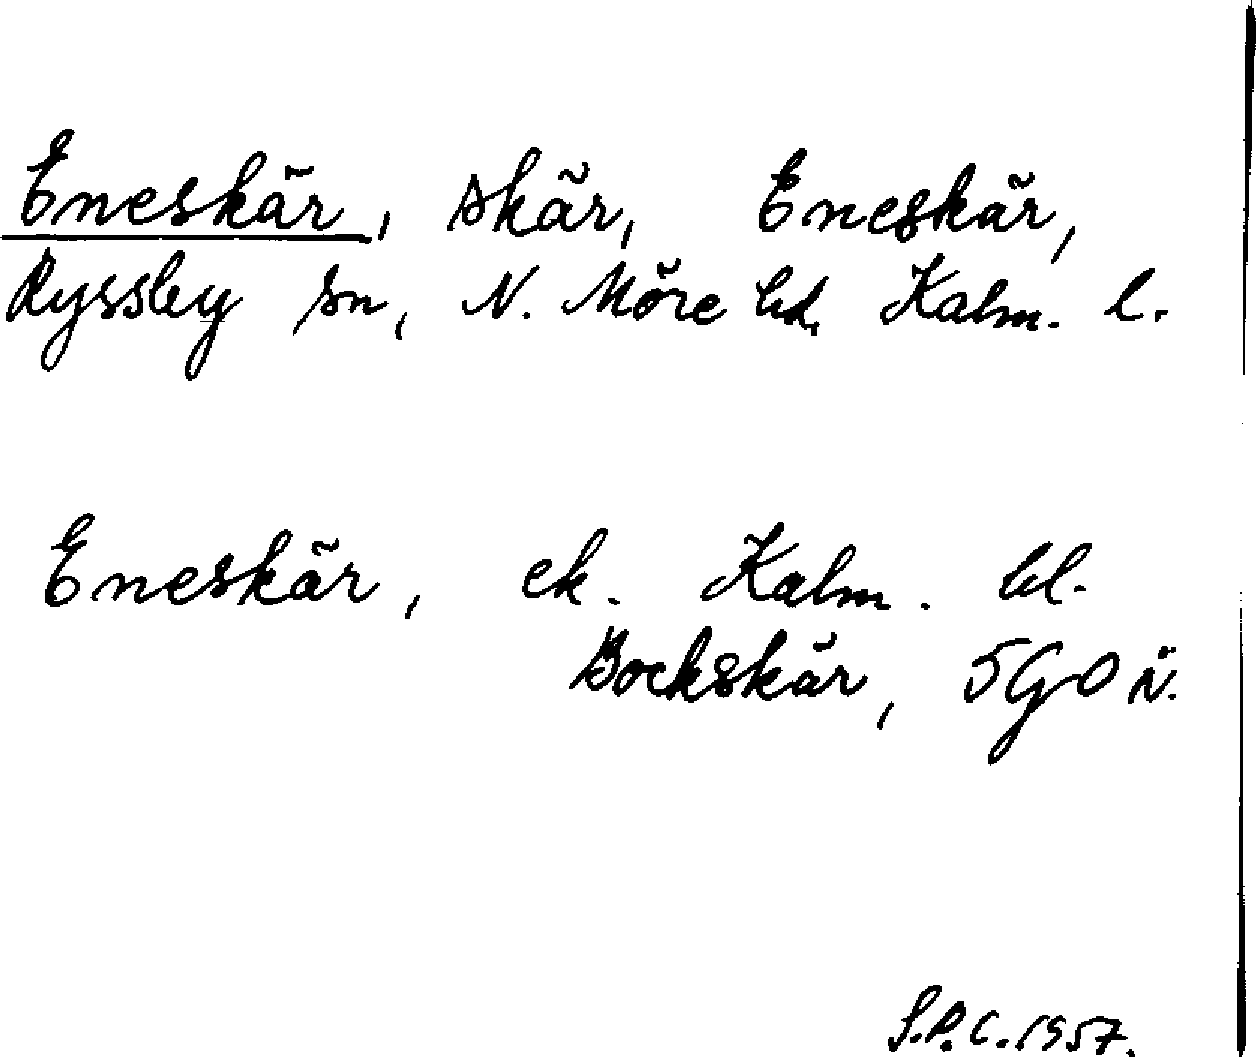 Eneskär, skär, Eneskär,
Ryssby sn, N. Möre hd. Kalm. l.
Eneskär, ek. Kalm. bl.
Bockskär, 5GO N.
S.P.C. 1957.